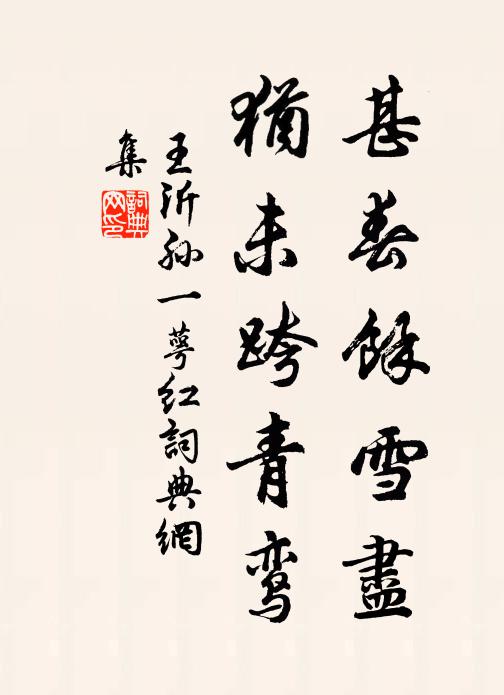 甚春餘雪盡
猶未跨青鸾
王沂孙一萼红詞典網
集
詞典网印